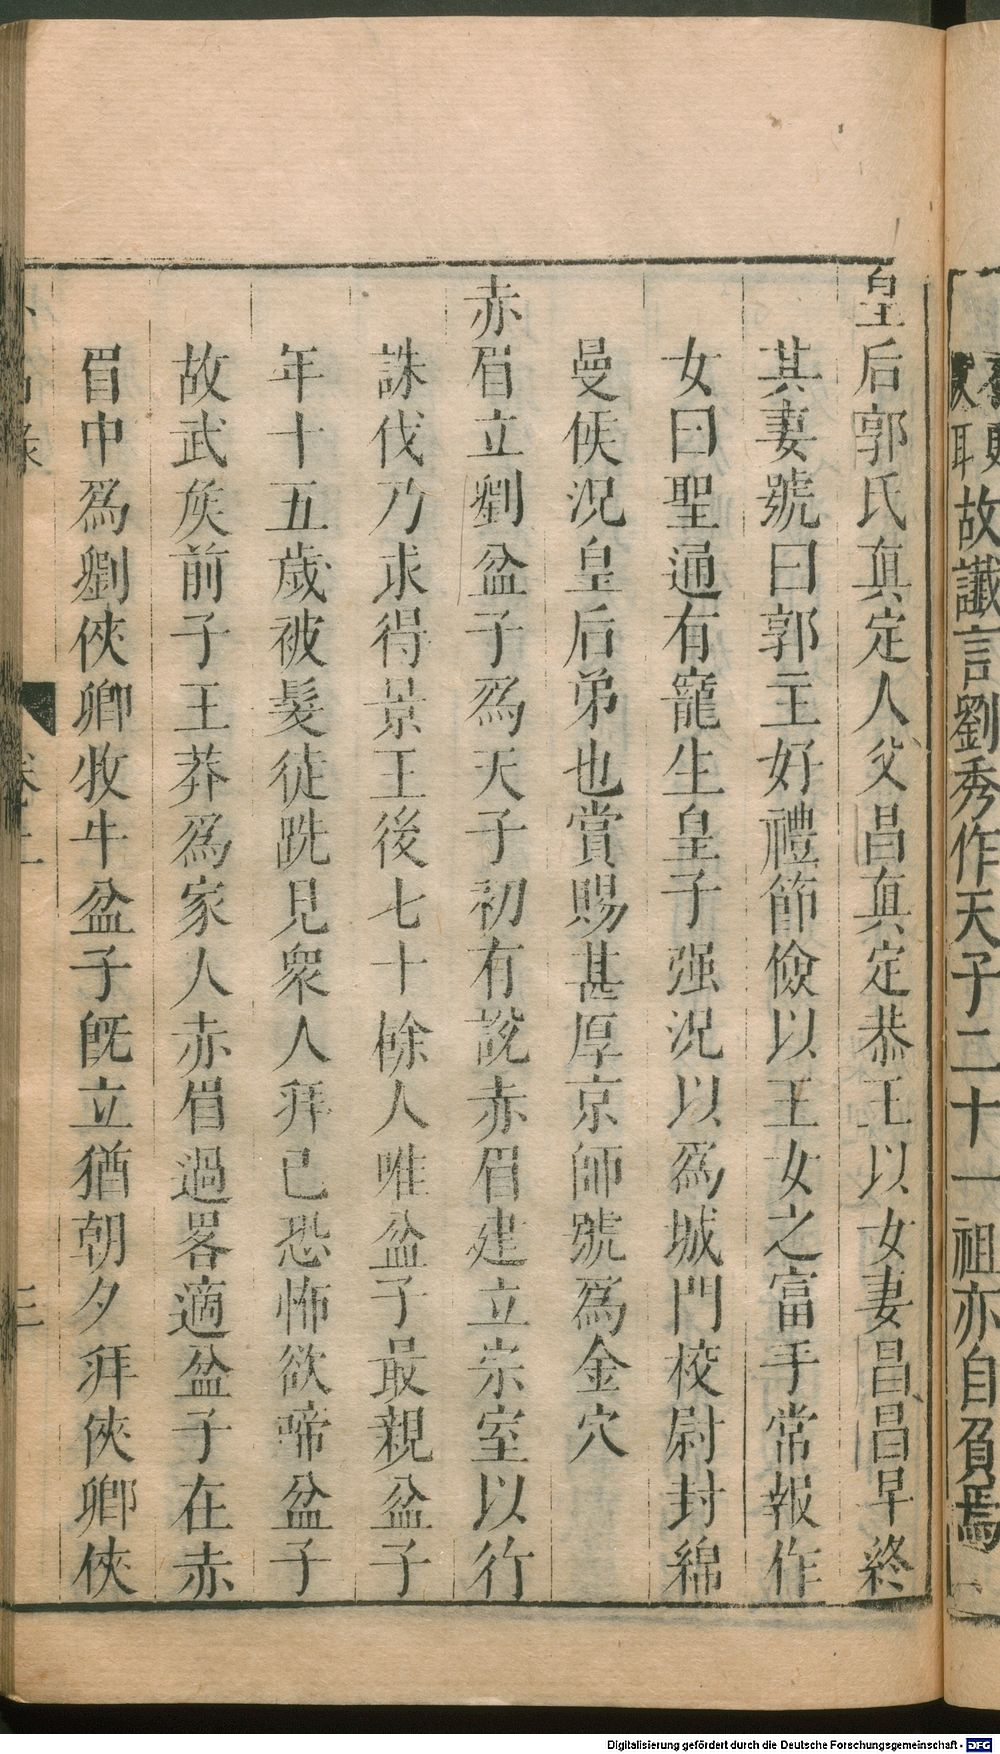 故讖言劉秀作天子二十一祖亦自負焉
皇后郭氏眞定人父昌眞定恭王以女妻昌昌早終
其妻號曰郭主好禮節儉以王女之富手常報作
女曰聖通有寵生皇子强況以爲城門校尉封綿
曼侯況皇后弟也賞賜甚厚京師號爲金穴
赤眉立劉盆子爲天子初有說赤眉建立宗室以行
誅伐乃求得景王後七十餘人唯盆子最親盆子
年十五歲被髮徒跣見衆人拜已恐怖欲啼盆子
故武矦前子王莽爲家人赤眉過畧適盆子在赤
眉中爲劉俠卿牧牛盆子既立猶朝夕拜俠卿俠
三
Digitalisierung gefördert durch die Deutsche Forschungsgemeinschaft - DFG